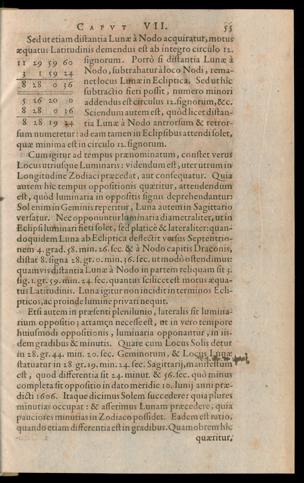 CAPVT VII. 55
Sed ut etiam distantia Lunæ à Nodo acquiratur, motus
æquatus Latitudinis demendus est ab integro circulo 12.
11 29 59 60 signorum. Porrò si distantia Lunæ à
3 1 59 24 Nodo, subtrahatur à loco Nodi, rema-
8 28 0 36 net locus Lunæ in Ecliptica. Sed ut hic
subtractio fieri possit, numero minori
5 26 20 0 addendus est circulus 12. signorum, &c.
8 28 0 36 Sciendum autem est, quòd licet distan-
8 28 19 24 tia Lunæ à Nodo antrorsum & retror-
sum numeretur: ad eam tamen in Eclipsibus attendi solet,
quæ minima est in circulo 12. signorum.
Cum igitur ad tempus prænominatum, constet verus
Locus utriusque Luminaris: videndum est, uter utrum in
Longitudine Zodiaci præcedat, aut consequatur. Quia
autem hic tempus oppositionis quæritur, attendendum
est, quòd luminaria in oppositis signis deprehendantur:
Sol enim in Geminis reperitur, Luna autem in Sagittario
versatur. Nec opponuntur luminaria diametraliter, ut in
Eclipsi luminari fieri solet, sed platicè & lateraliter: quan-
doquidem Luna ab Ecliptica deflectit versùs Septentrio-
nem 4. grad. 58. min. 26. sec. & à Nodo capitis Draconis,
distat 8. signa 28. gr. 0. min. 36. sec. ut modò ostendimus:
quamvis distantia Lunæ à Nodo in partem reliquam sit 3.
sig. 1. gr. 59. min. 24. sec. quantus scilicet est motus æqua-
tus Latitudinis. Luna igitur non incidet in terminos Ecli-
pticos, ac proinde lumine privari nequit.
Etsi autem in præsenti plenilunio, lateralis sit lumina-
rium oppositio; attamen necesse est, ut in vero tempore
huiusmodi oppositionis, luminaria opponantur, in iis-
dem gradibus & minutis. Quare cum Locus Solis detur
in 28. gr. 44. min. 20. sec. Geminorum, & Locus Lunæ
statuatur in 28 gr. 19. min. 24. sec. Sagittarij, manifestum
est, quòd differentia sit 24. minut. & 56. sec. quò minus
completa sit oppositio in dato meridie 10. Iunij anni præ-
dicti 1606. Itaque dicimus Solem succedere: quia plures
minutias occupat: & asserimus Lunam præcedere, quia
pauciores minutias in Zodiaco possidet. Eadem est ratio,
quando etiam differentia est in gradibus. Quamobrem hic
quæritur,